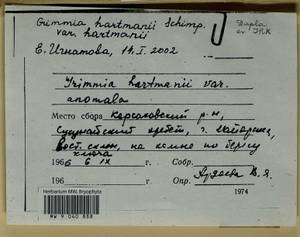 Grimmia hartmanii Schimp.
var. hartmanii
Dupla
ex IRK
Е. Игнатова, 14.I.2002
Grimmia hartmanii var.
anomala
Место сбора Корсаковский р-н,
Сусунайский хребет, г. Майорска,
Вост. склон, на камне по берегу
ключа
196 6 6 IX г. Собр.
196 Опр. Ардеева В. Я.
1974
Herbarium MW, Bryophyta
MW 9 040 888